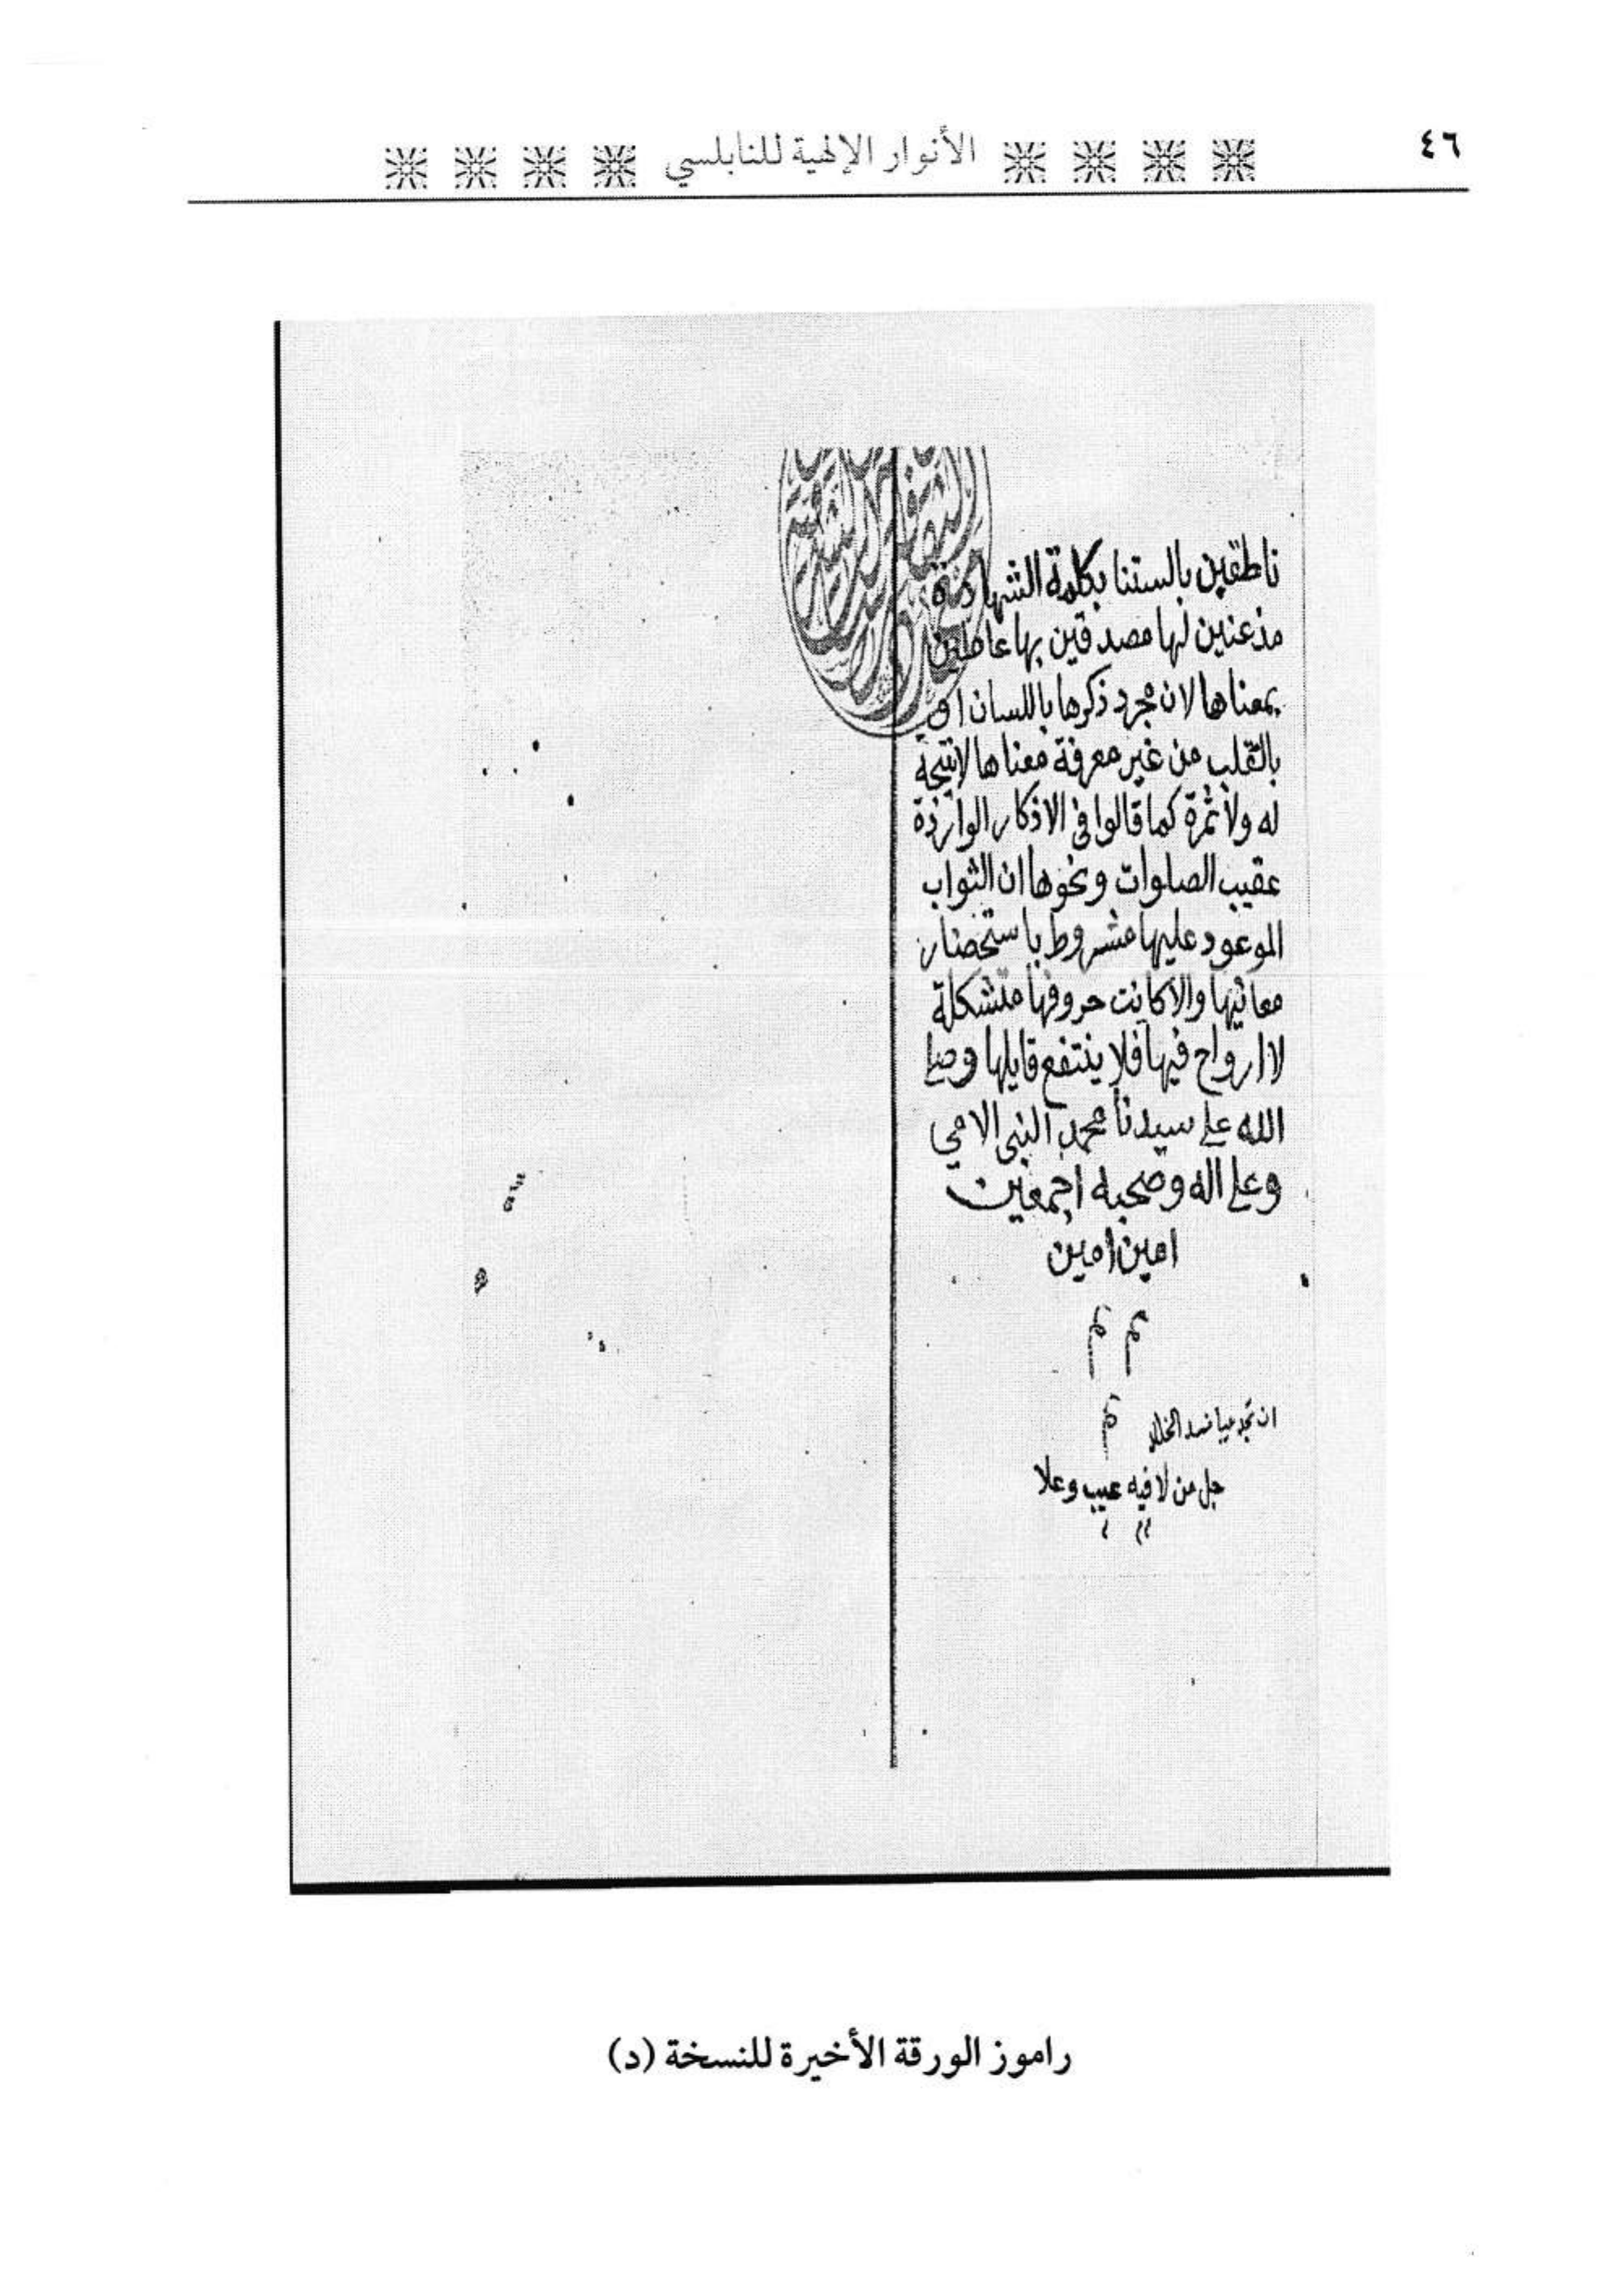 ٤٦
الأنوار الإلهية للنابلسي
ناطقين بالستنا بكلمة الشهادة
مذعنين لها مصدقين بها عاملين
بمعناها لان مجرد ذكرها باللسان او
بالقلب من غير معرفة معناها لا نتيجة
له ولا ثمرة كما قالوا في الاذكار الواردة
عقيب الصلوات ونحوها ان الثواب
الموعود عليها مشروط باستحضار
معانيها والا كانت حروفها متشكلة
لا ارواح فيها فلا ينتفع قايلها وصلى
الله على سيدنا محمد النبي الامي
وعلى اله وصحبه اجمعين
امين امين
ان تجد عيبا فسد الخللا
جل من لا فيه عيب وعلا
راموز الورقة الأخيرة للنسخة (د)